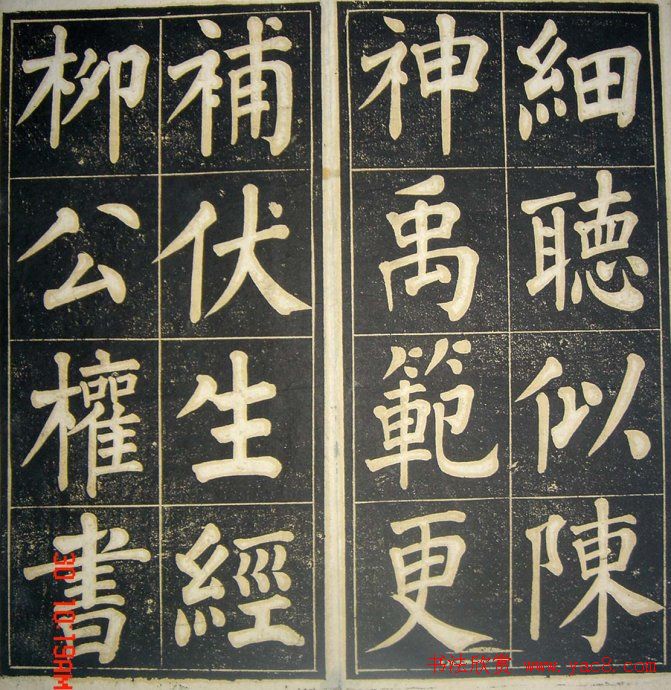 細聽似陳
神禹範更
補伏生經
柳公權書
30 10:19AM
书法欣赏 www.yac8.com